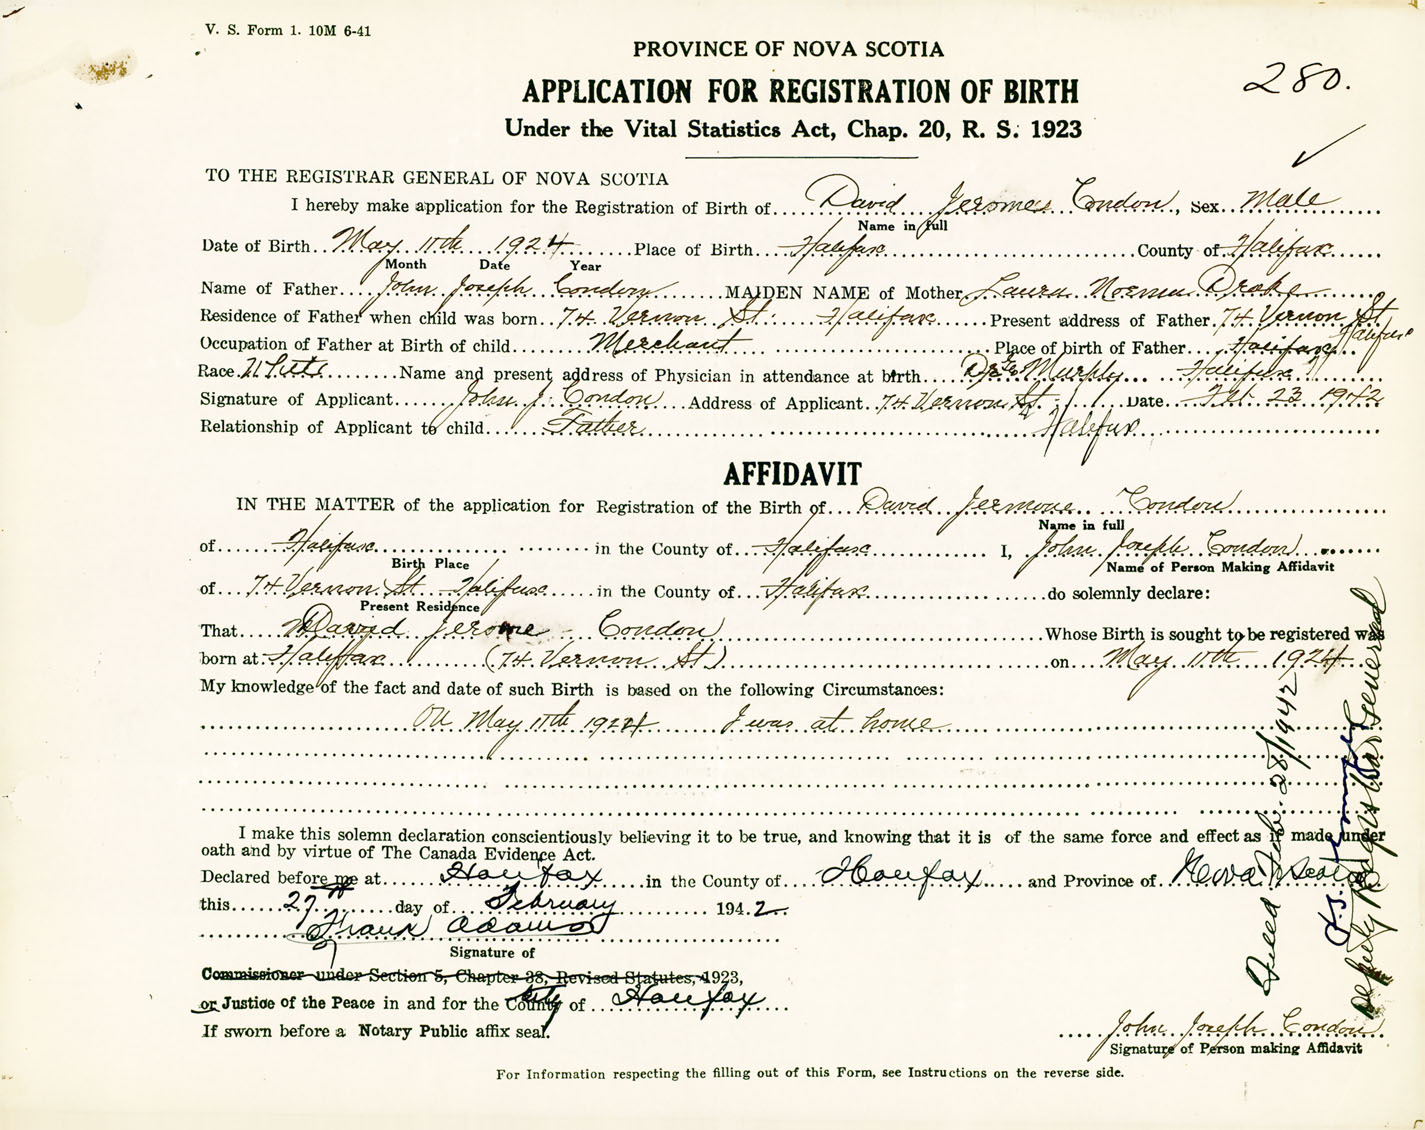 V. S. Form 1. 10M 6-41
PROVINCE OF NOVA SCOTIA
280.
APPLICATION FOR REGISTRATION OF BIRTH
Under the Vital Statistics Act, Chap. 20, R. S. 1923
TO THE REGISTRAR GENERAL OF NOVA SCOTIA
I hereby make application for the Registration of Birth of David Jerome Condon, Sex Male
Name in full
Date of Birth May 11th 1924 Place of Birth Halifax County of Halifax
Month Date Year
Name of Father John Joseph Condon MAIDEN NAME of Mother Laura Norma Drake
Residence of Father when child was born 74 Vernon St. Halifax Present address of Father 74 Vernon St Halifax
Occupation of Father at Birth of child Merchant Place of birth of Father Halifax
Race White Name and present address of Physician in attendance at birth Dr Murphy Halifax
Signature of Applicant John J. Condon Address of Applicant 74 Vernon St. Date Feb 23 1942
Relationship of Applicant to child Father Halifax
AFFIDAVIT
IN THE MATTER of the application for Registration of the Birth of David Jermone Condon
Name in full
of Halifax in the County of Halifax I, John Joseph Condon
Birth Place Name of Person Making Affidavit
of 74 Vernon St. Halifax in the County of Halifax do solemnly declare:
Present Residence
That David Jerome Condon Whose Birth is sought to be registered was
born at Halifax (74 Vernon St) on May 11th 1924
My knowledge of the fact and date of such Birth is based on the following Circumstances:
On May 11th 1924 I was at home
I make this solemn declaration conscientiously believing it to be true, and knowing that it is of the same force and effect as if made under
oath and by virtue of The Canada Evidence Act.
Declared before me at Halifax in the County of Halifax and Province of Nova Scotia
this 27th day of February 1942.
Frank Adams
Signature of
Commissioner under Section 5, Chapter 38, Revised Statutes, 1923,
or Justice of the Peace in and for the County City of Halifax
If sworn before a Notary Public affix seal.
John Joseph Condon
Signature of Person making Affidavit
For Information respecting the filling out of this Form, see Instructions on the reverse side.
Filed Feb. 28/1942
Deputy Registrar General